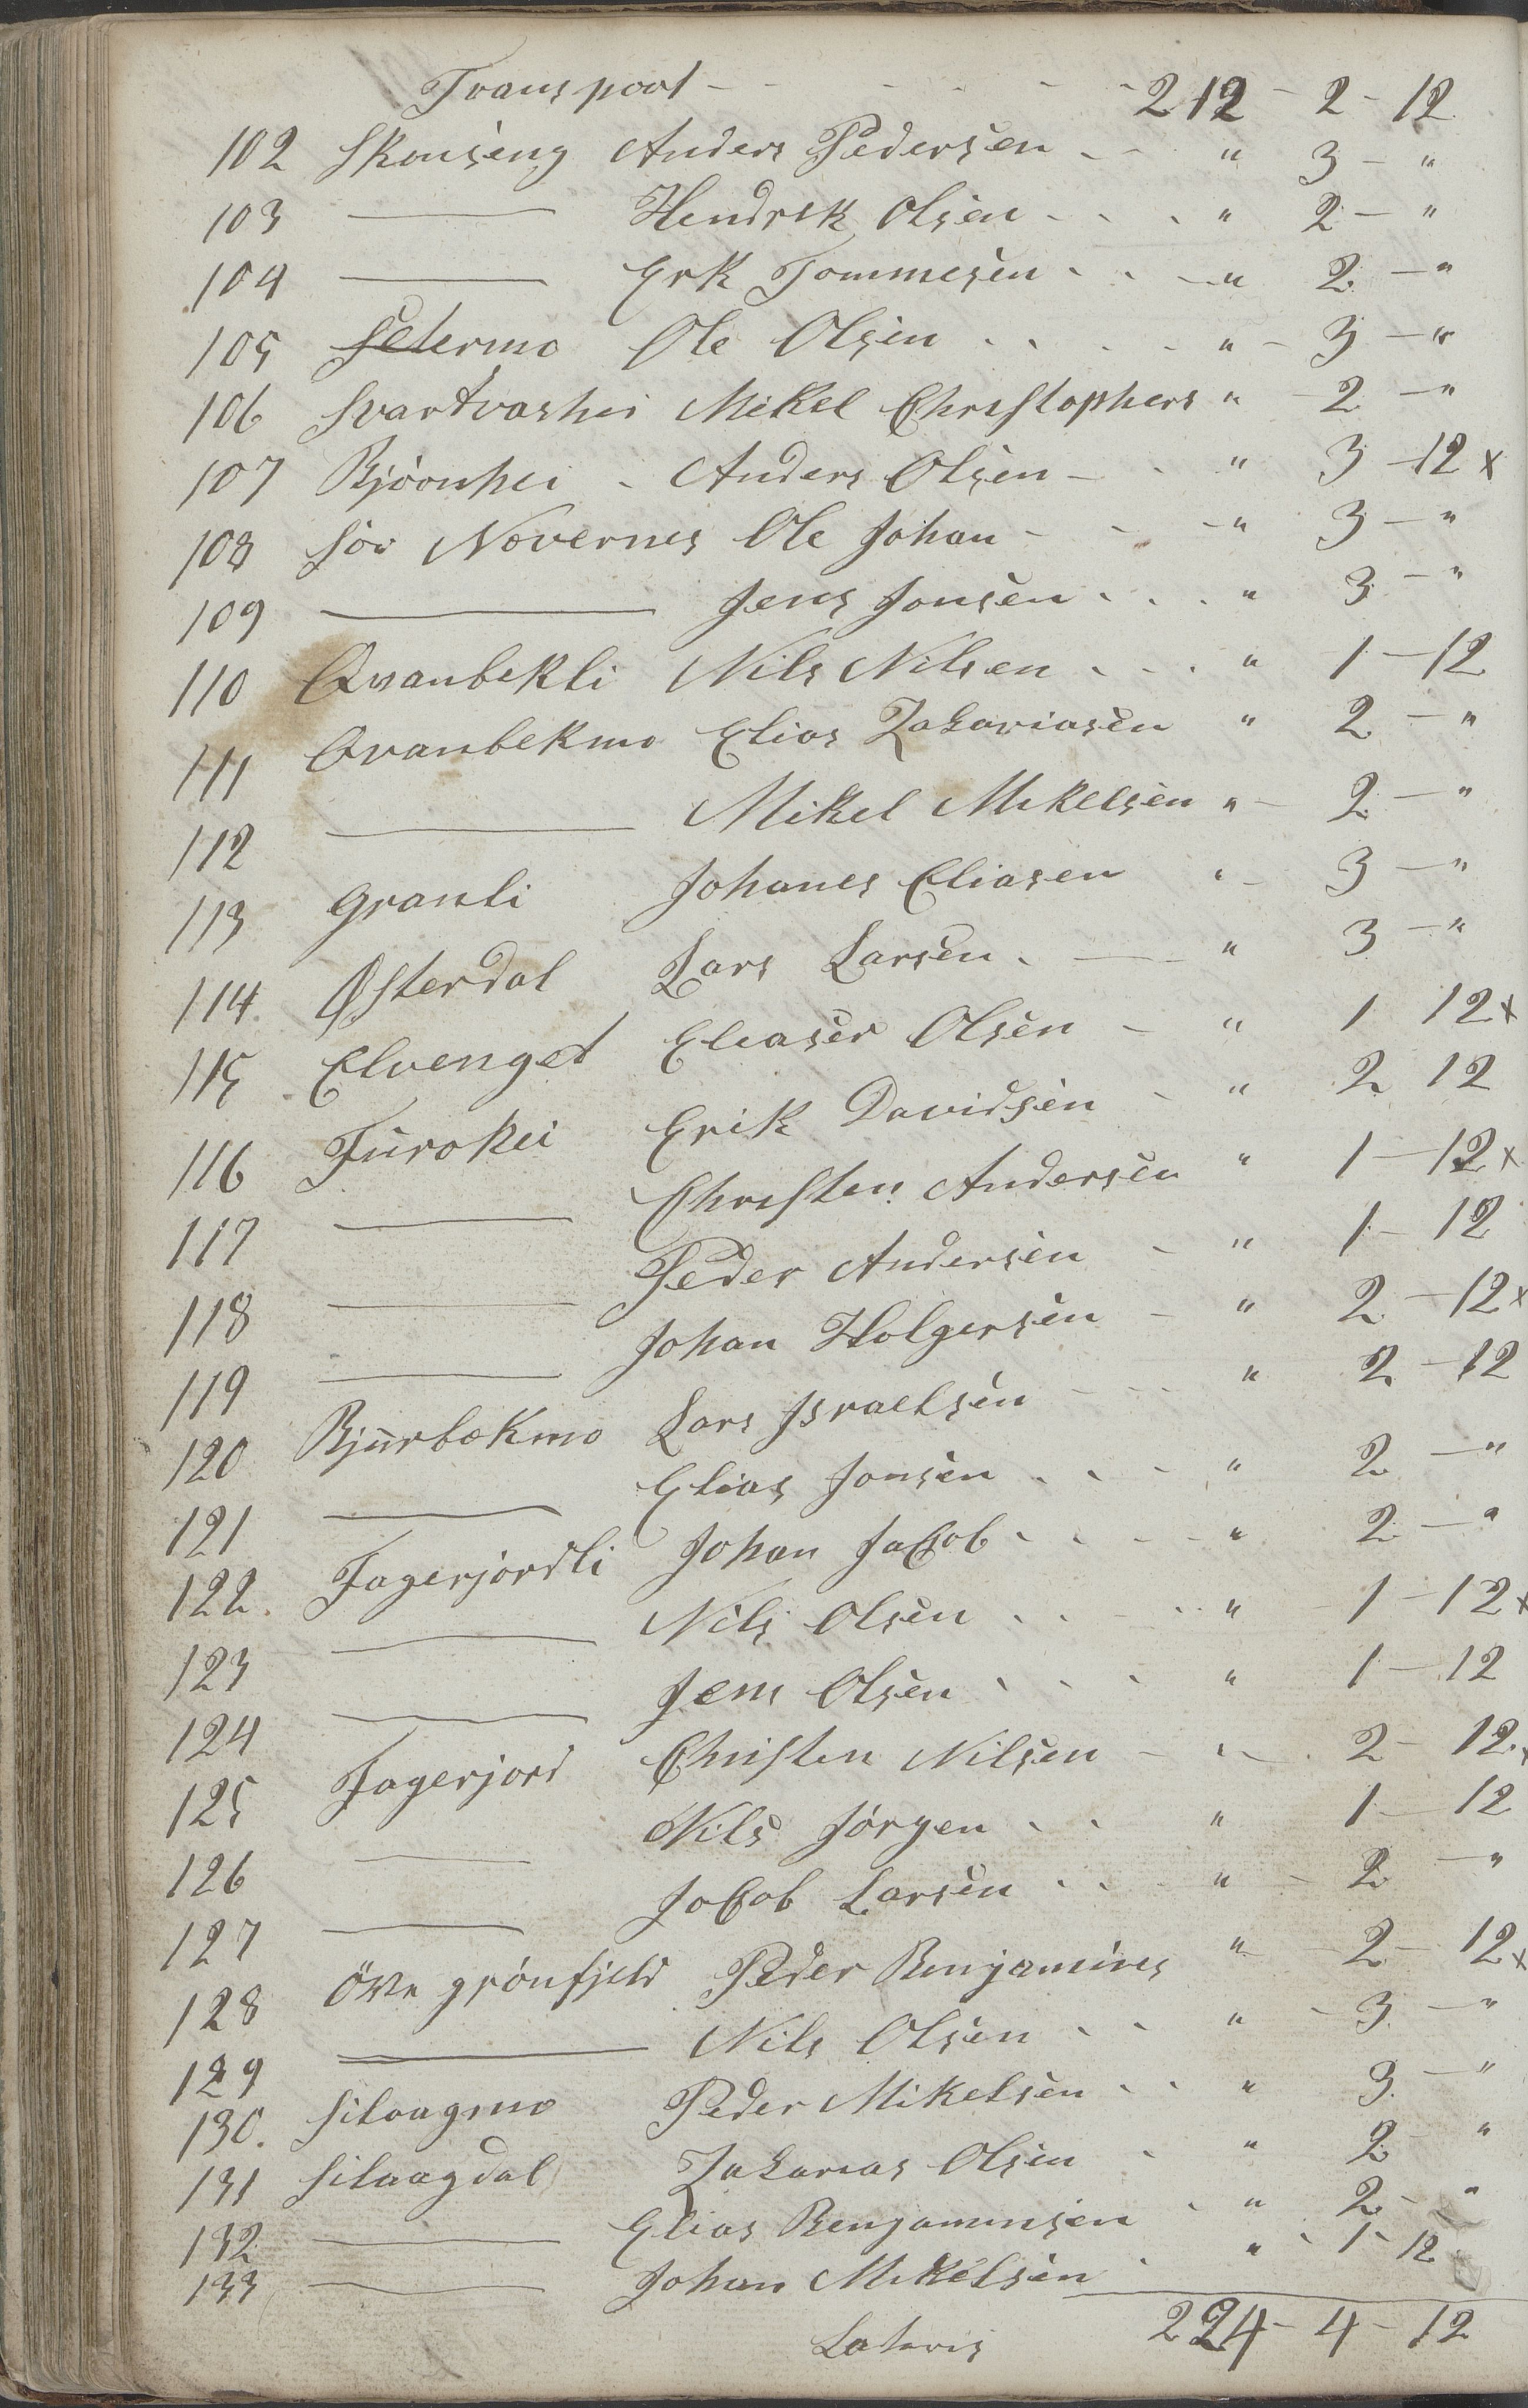 Transport - - - - - 212 - 2 - 12
102 Skonseng Anders Pedersen - - " 3 - "
103 — Hendrik Olsen - - - " 2 - "
104 — Erk Tommesen - - - " 2 - "
105 Setermo Ole Olsen - - - - " - 3 - "
106 Svartvashei Mikel Christophers " - 2 - "
107 Bjöonhei - Anders Olsen - - " 3 - 12 x
108 Sör Nævernes Ole Johan - - - " 3 - "
109 — Jens Jonsen - - - " 3 - "
110 Qvanbekli Nils Nilsen - - - " 1 - 12
111 Qvanbekmo Elias Zakariasen " 2 - "
112 — Mikel Mikelsen " - 2 - "
113 Granli Johanes Eliasen " - 3 - "
114. Østerdal Lars Larsen. — " 3 - "
115 Elvenget Eleaser Olsen - " 1 12 x
116 Fürohei Erik Davidsen - " 2 12
117 — Christen Andersen " 1 - 12 x
118 — Peder Andersen - " 1 - 12
119 — Johan Holgersen - " 2 - 12 x
120 Bjürbækmo Lars Israelsen - - - " 2 - 12
121 — Elias Jonsen - - - " 2 - "
122. Fagerjordli Johan Jacob - - - - " 2 - "
123 — Nils Olsen - - - - " 1 - 12 x
124 — Jens Olsen - - - " 1 - 12
125 Fagerjord Christen Nilsen - " - 2 - 12 x
126 — Nils Jörgen - - " 1 - 12
127 — Jacob Larsen - - - " - 2 - "
128 Övre grönfjeld Peder Benjamins " - 2 - 12 x
129 — Nils Olsen - - " - 3 - "
130. Silaagmo Peder Mikelsen - - " 3 - "
131 Silaagdal Zakarias Olsen - " 2 "
132 — Elias Benjaminsen - " 2 - "
133 — Johan Mikelsen - " - 1 - 12
Lateris 224 - 4 - 12